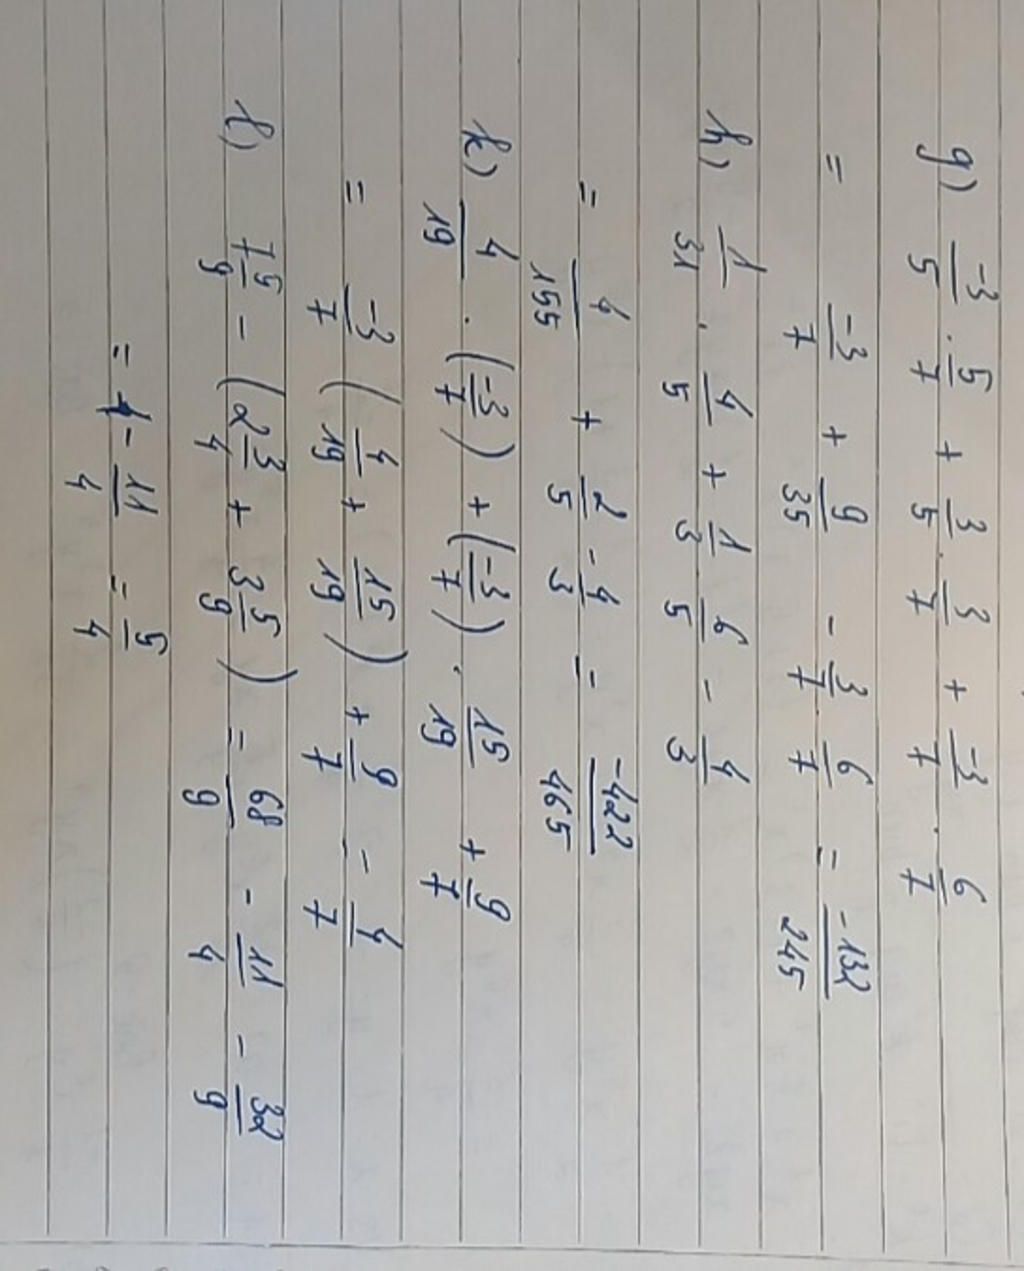 g) -3/5 . 5/7 + 3/5 . 3/7 + -3/7 . 6/7
= -3/7 + 9/35 - 3/7 6/7 = -132/245
h) 1/31 . 4/5 + 1/3 6/5 - 4/3
= 4/155 + 2/5 - 4/3 = -422/465
k) 4/19 . (-3/7) + (-3/7) . 15/19 + 9/7
= -3/7 (4/19 + 15/19) + 9/7 - 4/7
l) 7 5/9 - (2 3/4 + 3 5/9) = 68/9 - 11/4 - 32/9
= 4 - 11/4 = 5/4